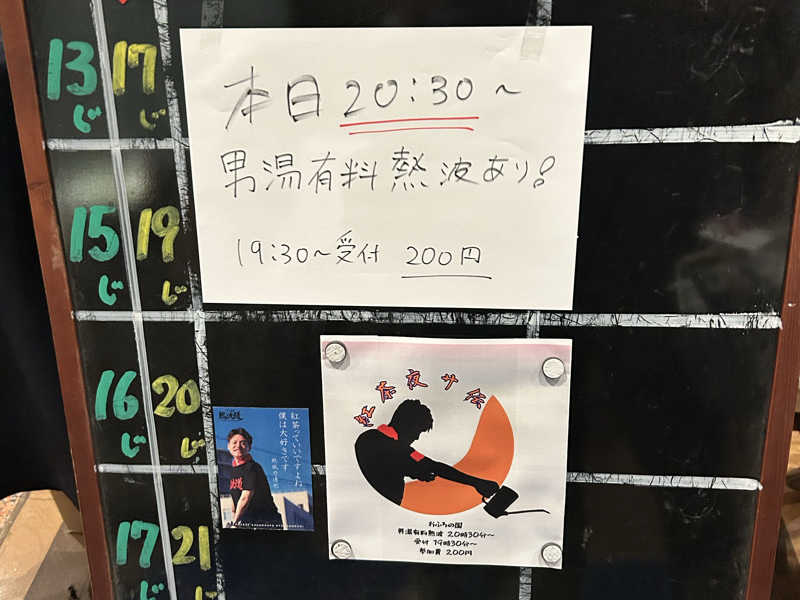 13じ 17じ
本日 20:30~
男湯有料熱波あり!
19:30~受付 200円
15じ 19じ
16じ 20じ
紅茶夜ツ会
紅茶っていいですよね。
僕は大好きです
おふろの国
男湯有料熱波 20時30分~
受付 19時30分~
参加費 200円
17じ 21じ